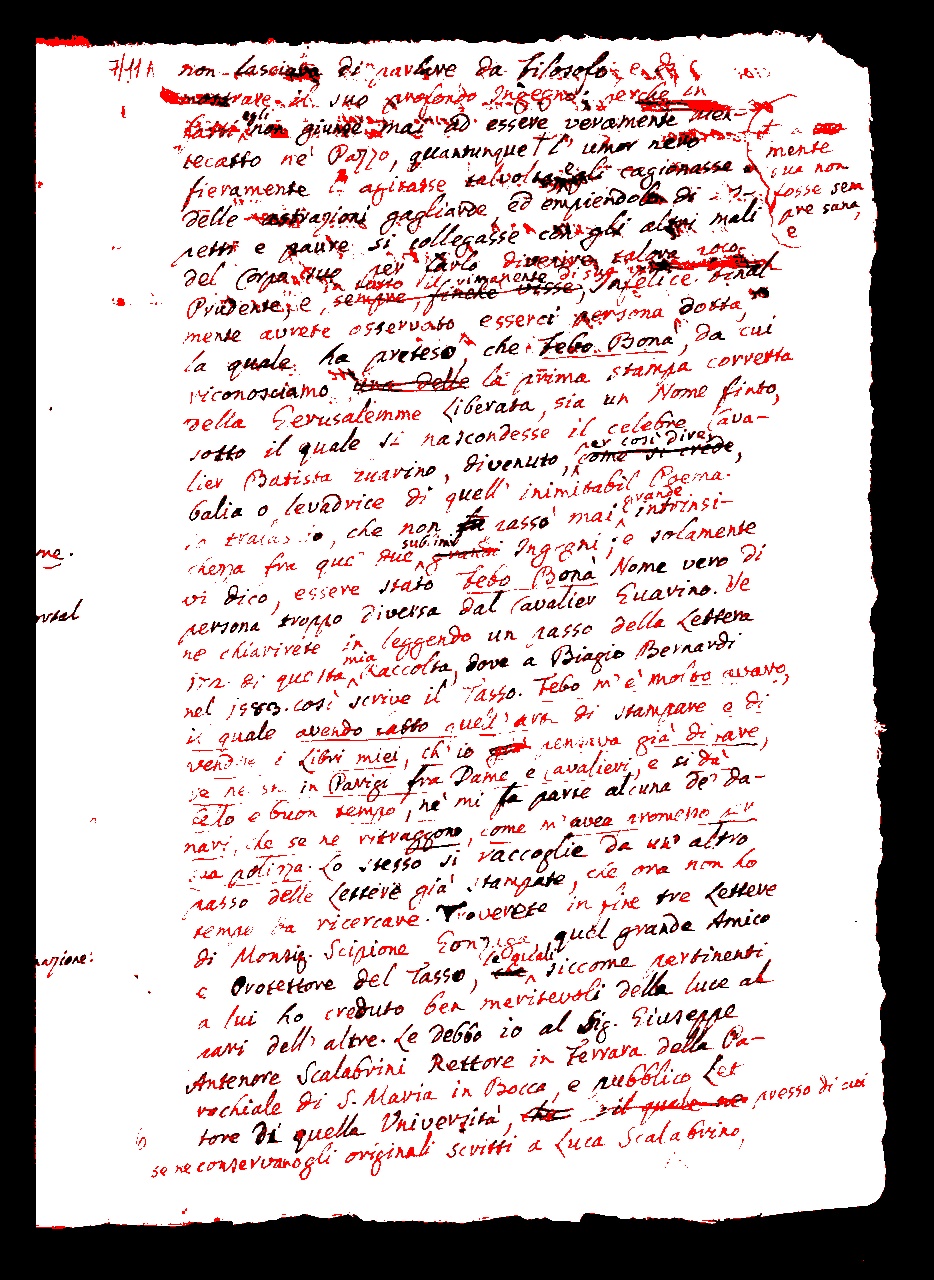 7/11 A
non lasciava di parlare da Filosofo, e di
mostrare il suo profondo Ingegno; perchè in
fatti egli non giunse mai ad essere veramente men-
tecatto nè Pazzo, quantunque l'umor nero
fieramente agitasse talvolta e gli cagionasse
delle astrazioni gagliarde, ed empiendolo di
petti e paure si collegasse con gli altri mali
del Corpo suo per farlo divenire talora poco
in tutto il rimanente di sua
Prudente, e sempre, finchè visse, Infelice. Final-
mente avrete osservato esserci persona dotta,
la quale ha preteso, che Febo Bonà, da cui
riconosciamo una delle la prima stampa corretta
della Gerusalemme Liberata, sia un Nome finto,
sotto il quale si nascondesse il celebre Cava-
per così dire,
lier Batista Guarino, divenuto, come si crede,
balia o levadrice di quell' inimitabil Poema.
grande
Io tralascio, che non fu passò mai intrinsi-
sublimi
chezza fra que' due grandi Ingegni; e solamente
vi dico, essere stato Febo Bonà Nome vero di
persona troppo diversa dal Cavalier Guarino. Ve
ne chiarirete in leggendo un passo della Lettera
mia
172. di questa Raccolta, dove a Biagio Bernardi
nel 1583. così scrive il Tasso. Febo m'è molto avaro,
il quale avendo tutto quell' di stampare e di
vendere i Libri miei, ch'io già pensava già di fare,
se ne sta in Parigi fra Dame e Cavalieri, e si dà
bello e buon tempo, nè mi fa parte alcuna de' da-
nari, che se ne ritraggono, come m'avea promesso per
sua polizza. Lo stesso si raccoglie da un' altro
passo delle Lettere già stampate, che ora non ho
tempo da ricercare. Troverete in fine tre Lettere
di Monsig. Scipione Gonzaga, quel grande Amico
le quali
e Protettore del Tasso, che siccome pertinenti
a lui ho creduto ben meritevoli della luce al
pari dell' altre. Le debbo io al Sig. Giuseppe
Antenore Scalabrini Rettore in Ferrara della Pa-
rochiale di S. Maria in Bocca, e pubblico Let
tore di quella Università, che il quale ne presso di cui
se ne conservano gli originali scritti a Luca Scalabrino,
mente
sua non
fosse sem
pre sana,
e
me.
nazione: